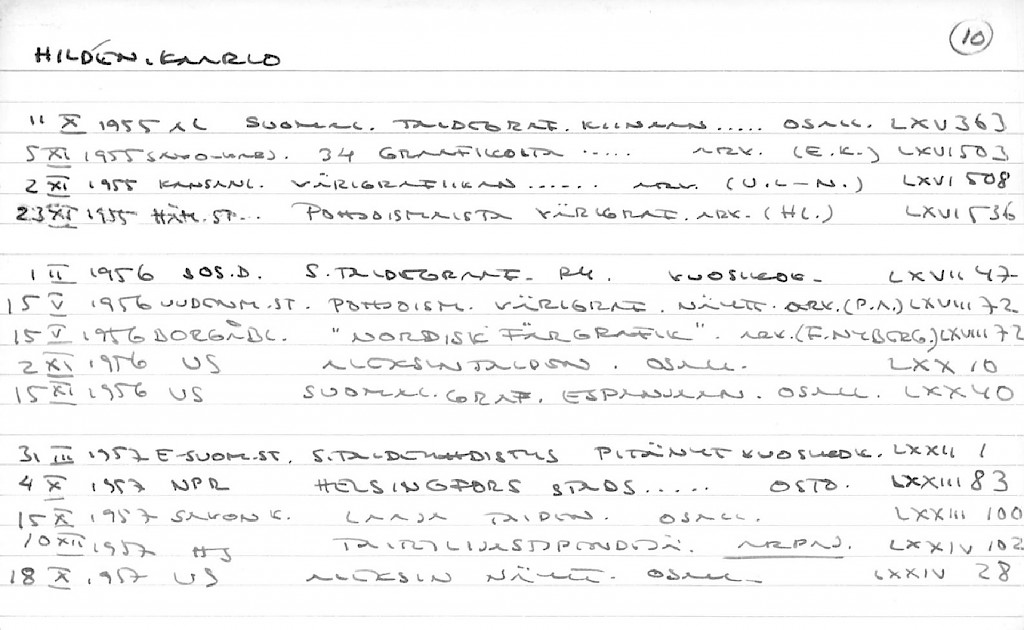 10
HILDÉN, KAARLO
11 X 1955 AL SUOMAL. TAIDEGRAF. KIINAAN..... OSALL. LXV 363
5 XI 1955 SAVO-KARJ. 34 GRAFIKOLTA ..... ARV. (E.K.) LXVI 503
2 XI 1955 KANSANL. VÄRIGRAFIIKAN ...... ARV. (U.L-N.) LXVI 508
23 XI 1955 HÄM.ST... POHJOISMAISTA VÄRIGRAF. ARV. (HL.) LXVI 536
1 II 1956 SOS.D. S.TAIDEGRAAF. VUOSIKOK. LXVII 47
15 V 1956 UUDENM.ST. POHJOISM. VÄRIGRAF. NÄYTT. ARV. (P.A.) LXVIII 72
15 V 1956 BORGÅBL. "NORDISK FÄRGRAFIK". ARV. (F. NYBERG.) LXVIII 72
2 XI 1956 US ALEKSIN TAIDEN. OSALL. LXX 10
15 XI 1956 US SUOMAL. GRAF. ESPANJAAN. OSALL. LXX 40
31 III 1957 E-SUOM.ST. S.TAIDEYHDISTYS PITÄNYT VUOSIKOK. LXXII 1
4 X 1957 NPR HELSINGFORS STADS ..... OSTO. LXXIII 83
15 X 1957 SAVON K. LAAJA TAIDEN. OSALL. LXXIII 100
10 XII 1957 HS TAITEILIJASTIPENDEJÄ. ARPAJ. LXXIV 102
18 X 1957 US ALEKSIN NÄYTT. OSALL. LXXIV 28